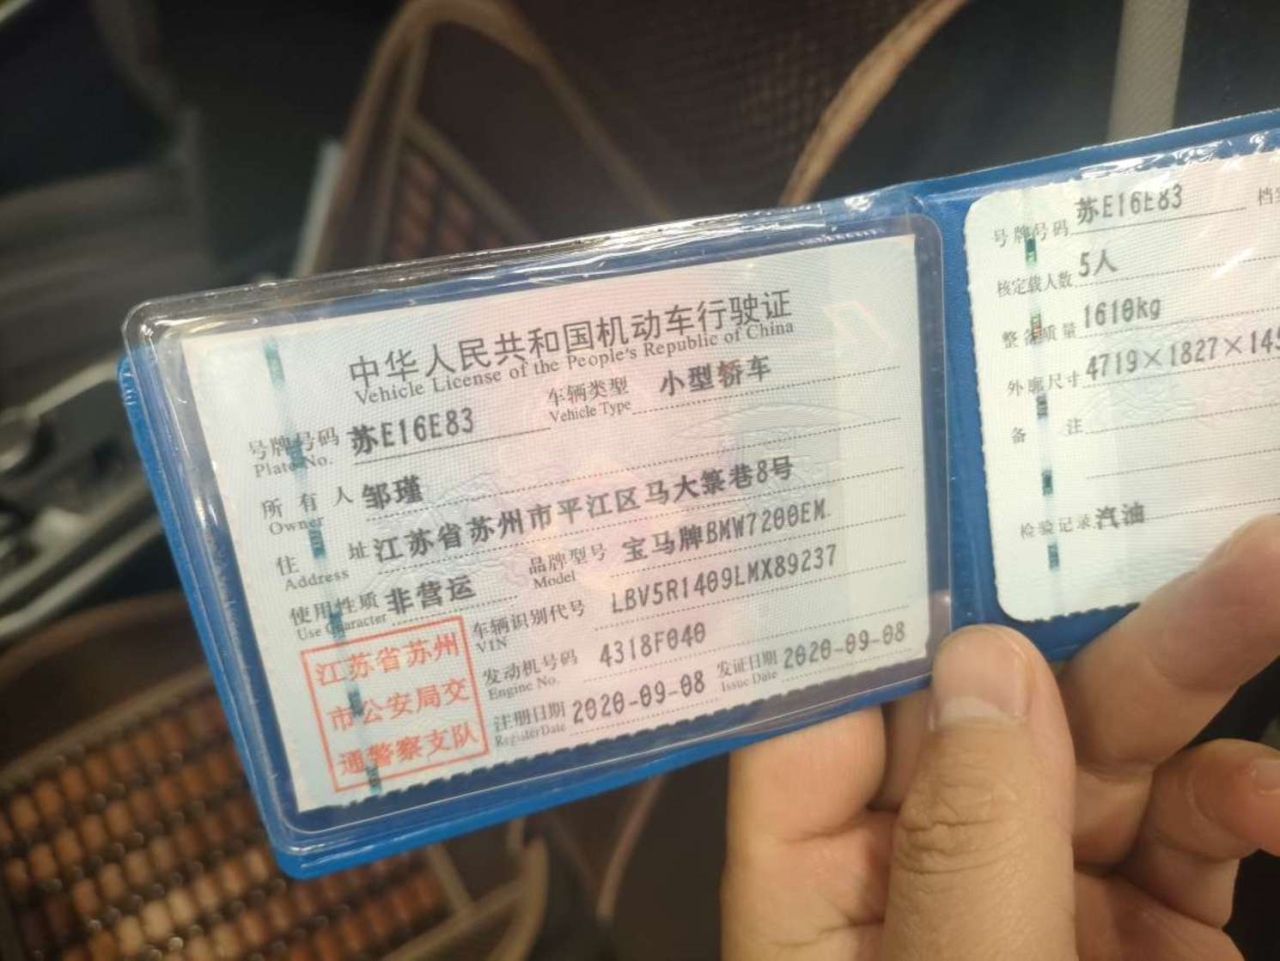 中华人民共和国机动车行驶证
Vehicle License of the People's Republic of China
号牌号码 苏E16E83 车辆类型 小型轿车
Plate No. Vehicle Type
所有人 邹瑾
Owner
住址 江苏省苏州市平江区马大箓巷8号
Address
使用性质 非营运 品牌型号 宝马牌BMW7200EM
Use Character Model
车辆识别代号 LBV5R1409LMX89237
VIN
发动机号码 4318F040
Engine No.
注册日期 2020-09-08 发证日期 2020-09-08
Register Date Issue Date
江苏省苏州
市公安局交
通警察支队
号牌号码 苏E16E83
核定载人数 5人
整备质量 1610kg
外廓尺寸 4719×1827×145
备注
检验记录 汽油